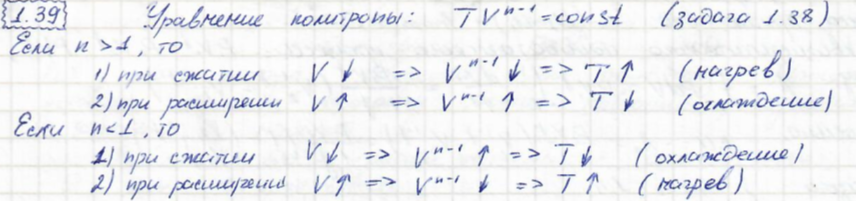 1.39 Уравнение политропы: TVⁿ⁻¹ = const (задача 1.38)
Если n > 1, то
1) при сжатии V ↓ => Vⁿ⁻¹ ↓ => T ↑ (нагрев)
2) при расширении V ↑ => Vⁿ⁻¹ ↑ => T ↓ (охлаждение)
Если n < 1, то
1) при сжатии V ↓ => Vⁿ⁻¹ ↑ => T ↓ (охлаждение)
2) при расширении V ↑ => Vⁿ⁻¹ ↓ => T ↑ (нагрев)